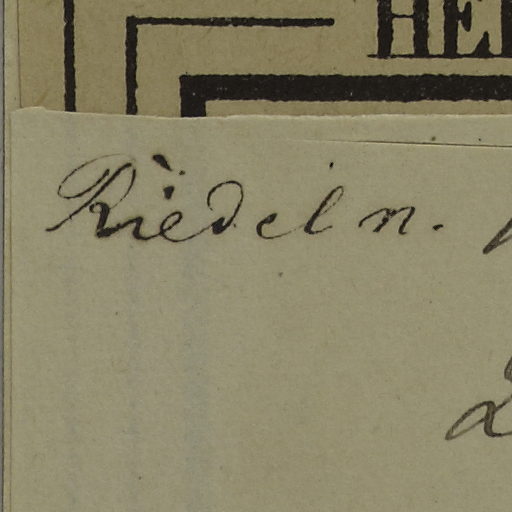 HE
Riedeln.